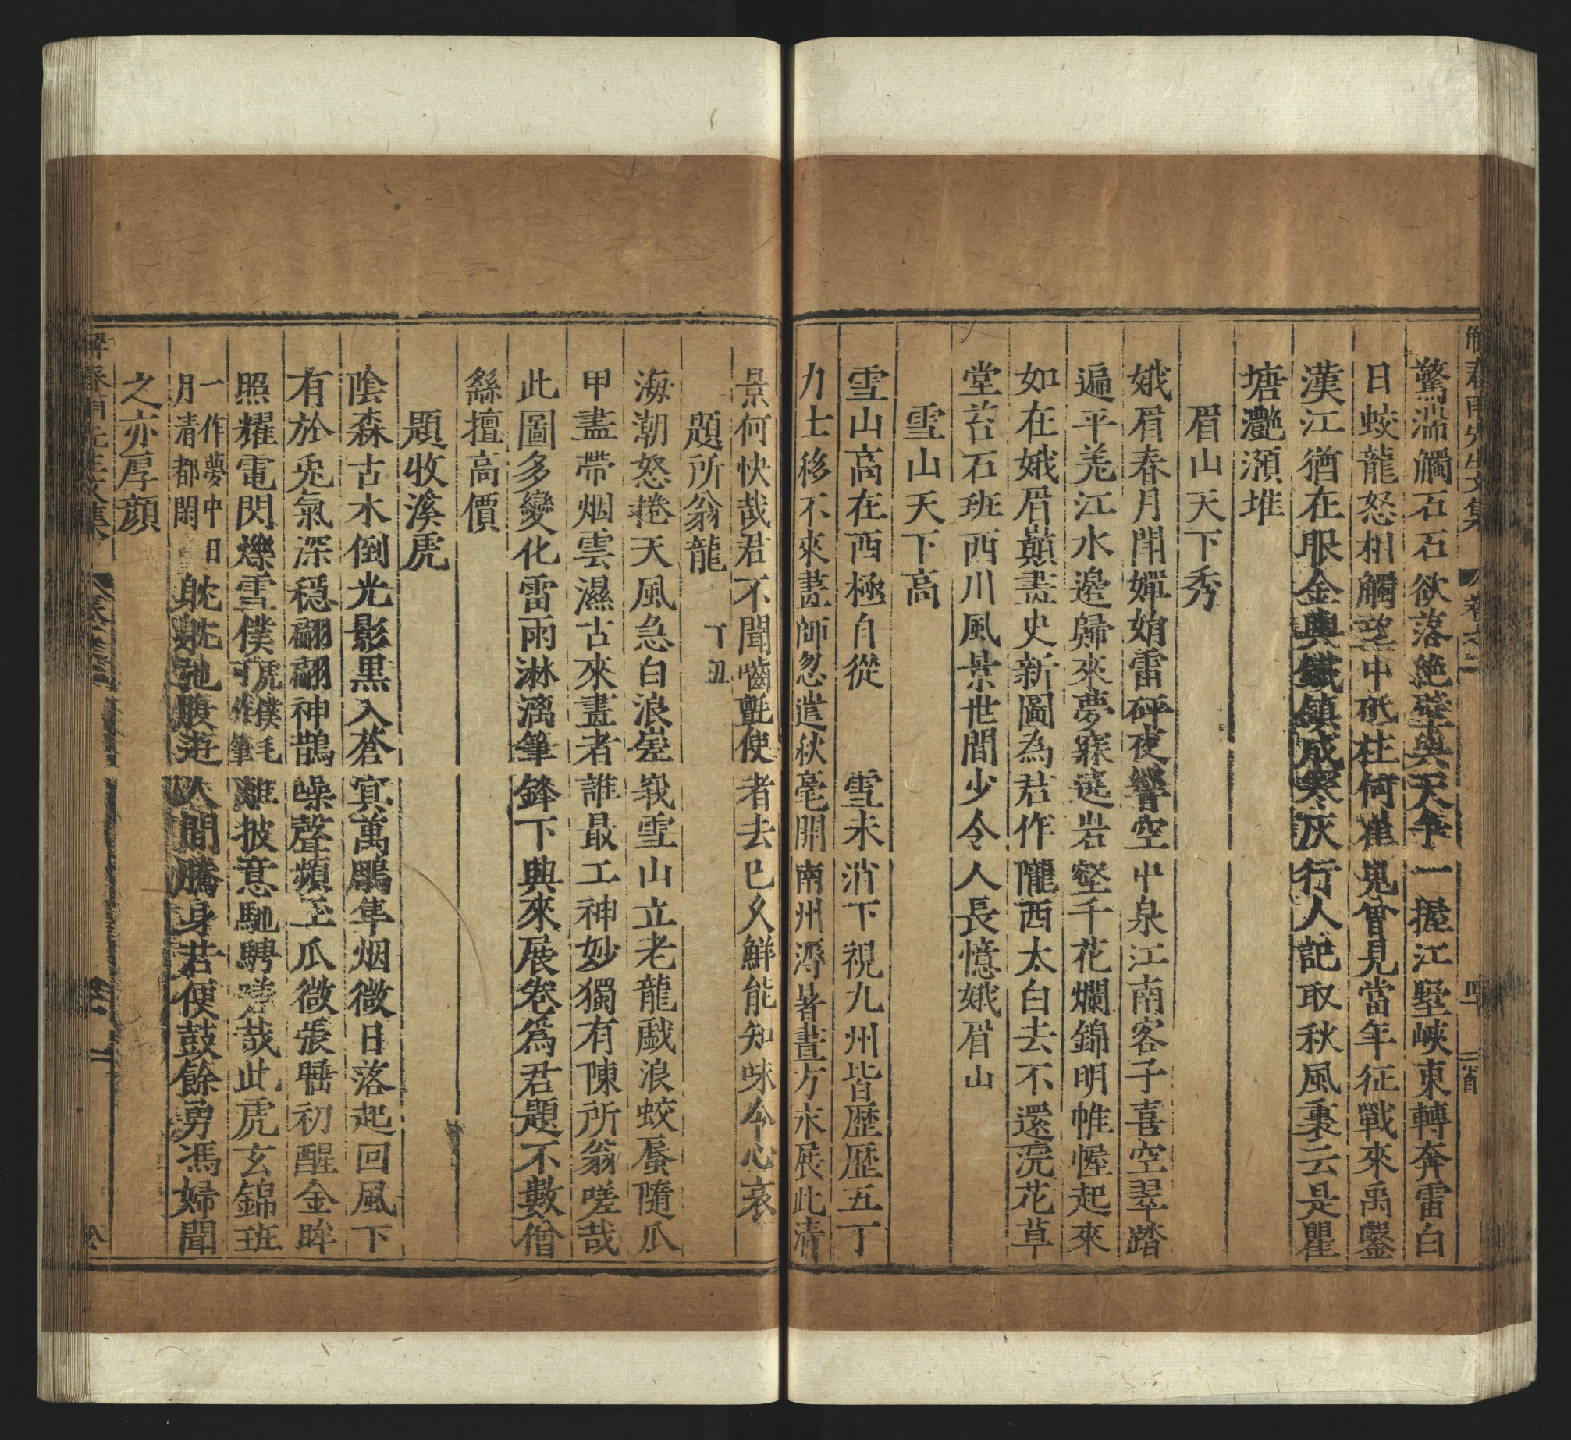 驚湍觸石石欲落絶壁與天爭一握江墅峽東轉奔雷白
日蛟龍怒相觸望中砥柱何崔嵬曾見當年征戰來禹鑿
漢江猶在眼金輿鐵鎮成寒灰行人記取秋風裏云是瞿
塘灧澦堆
眉山天下秀
娥眉春月開嬋娟雷砰夜響空中泉江南客子喜空翠踏
遍平羌江水邊歸來夢寐遶岩壑千花爛錦明帷幄起來
如在娥眉巔畫史新圖為君作隴西太白去不還浣花草
堂苔石班西川風景世間少令人長憶娥眉山
雪山天下高
雪山高在西極自從 雪未消下視九州皆歷歷五丁
力士移不來畫師忽遣秋毫開南州溽暑晝方永展此清
景何快哉君不聞嚙氈使者去已久鮮能知味令心哀
題所翁龍
海潮怒捲天風急白浪嵳峩雪山立老龍戯浪蛟蜃隨爪
甲盡帶烟雲濕古來畫者誰最工神妙獨有陳所翁嗟哉
此圖多變化雷雨淋漓筆鋒下興來展卷爲君題不數僧
繇擅高價
題收溪虎
陰森古木倒光影黑入蒼寘萬鵰隼烟微日落起回風下
有於兎氣深穏翩翩神鵲噪聲頻玉爪微張睡初醒金眸
照耀電閃爍雪僕虎僕毛可作筆離披意馳騁嗟哉此虎玄錦班
一作夢中日月清都閑 眈眈弛腹逰人間騰身若便鼓餘勇馮婦聞
之亦厚顔